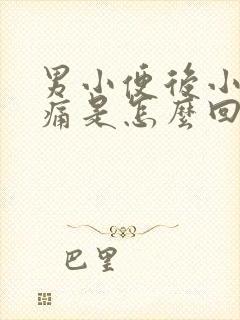 男小便後小
痛是怎麼回
巴里